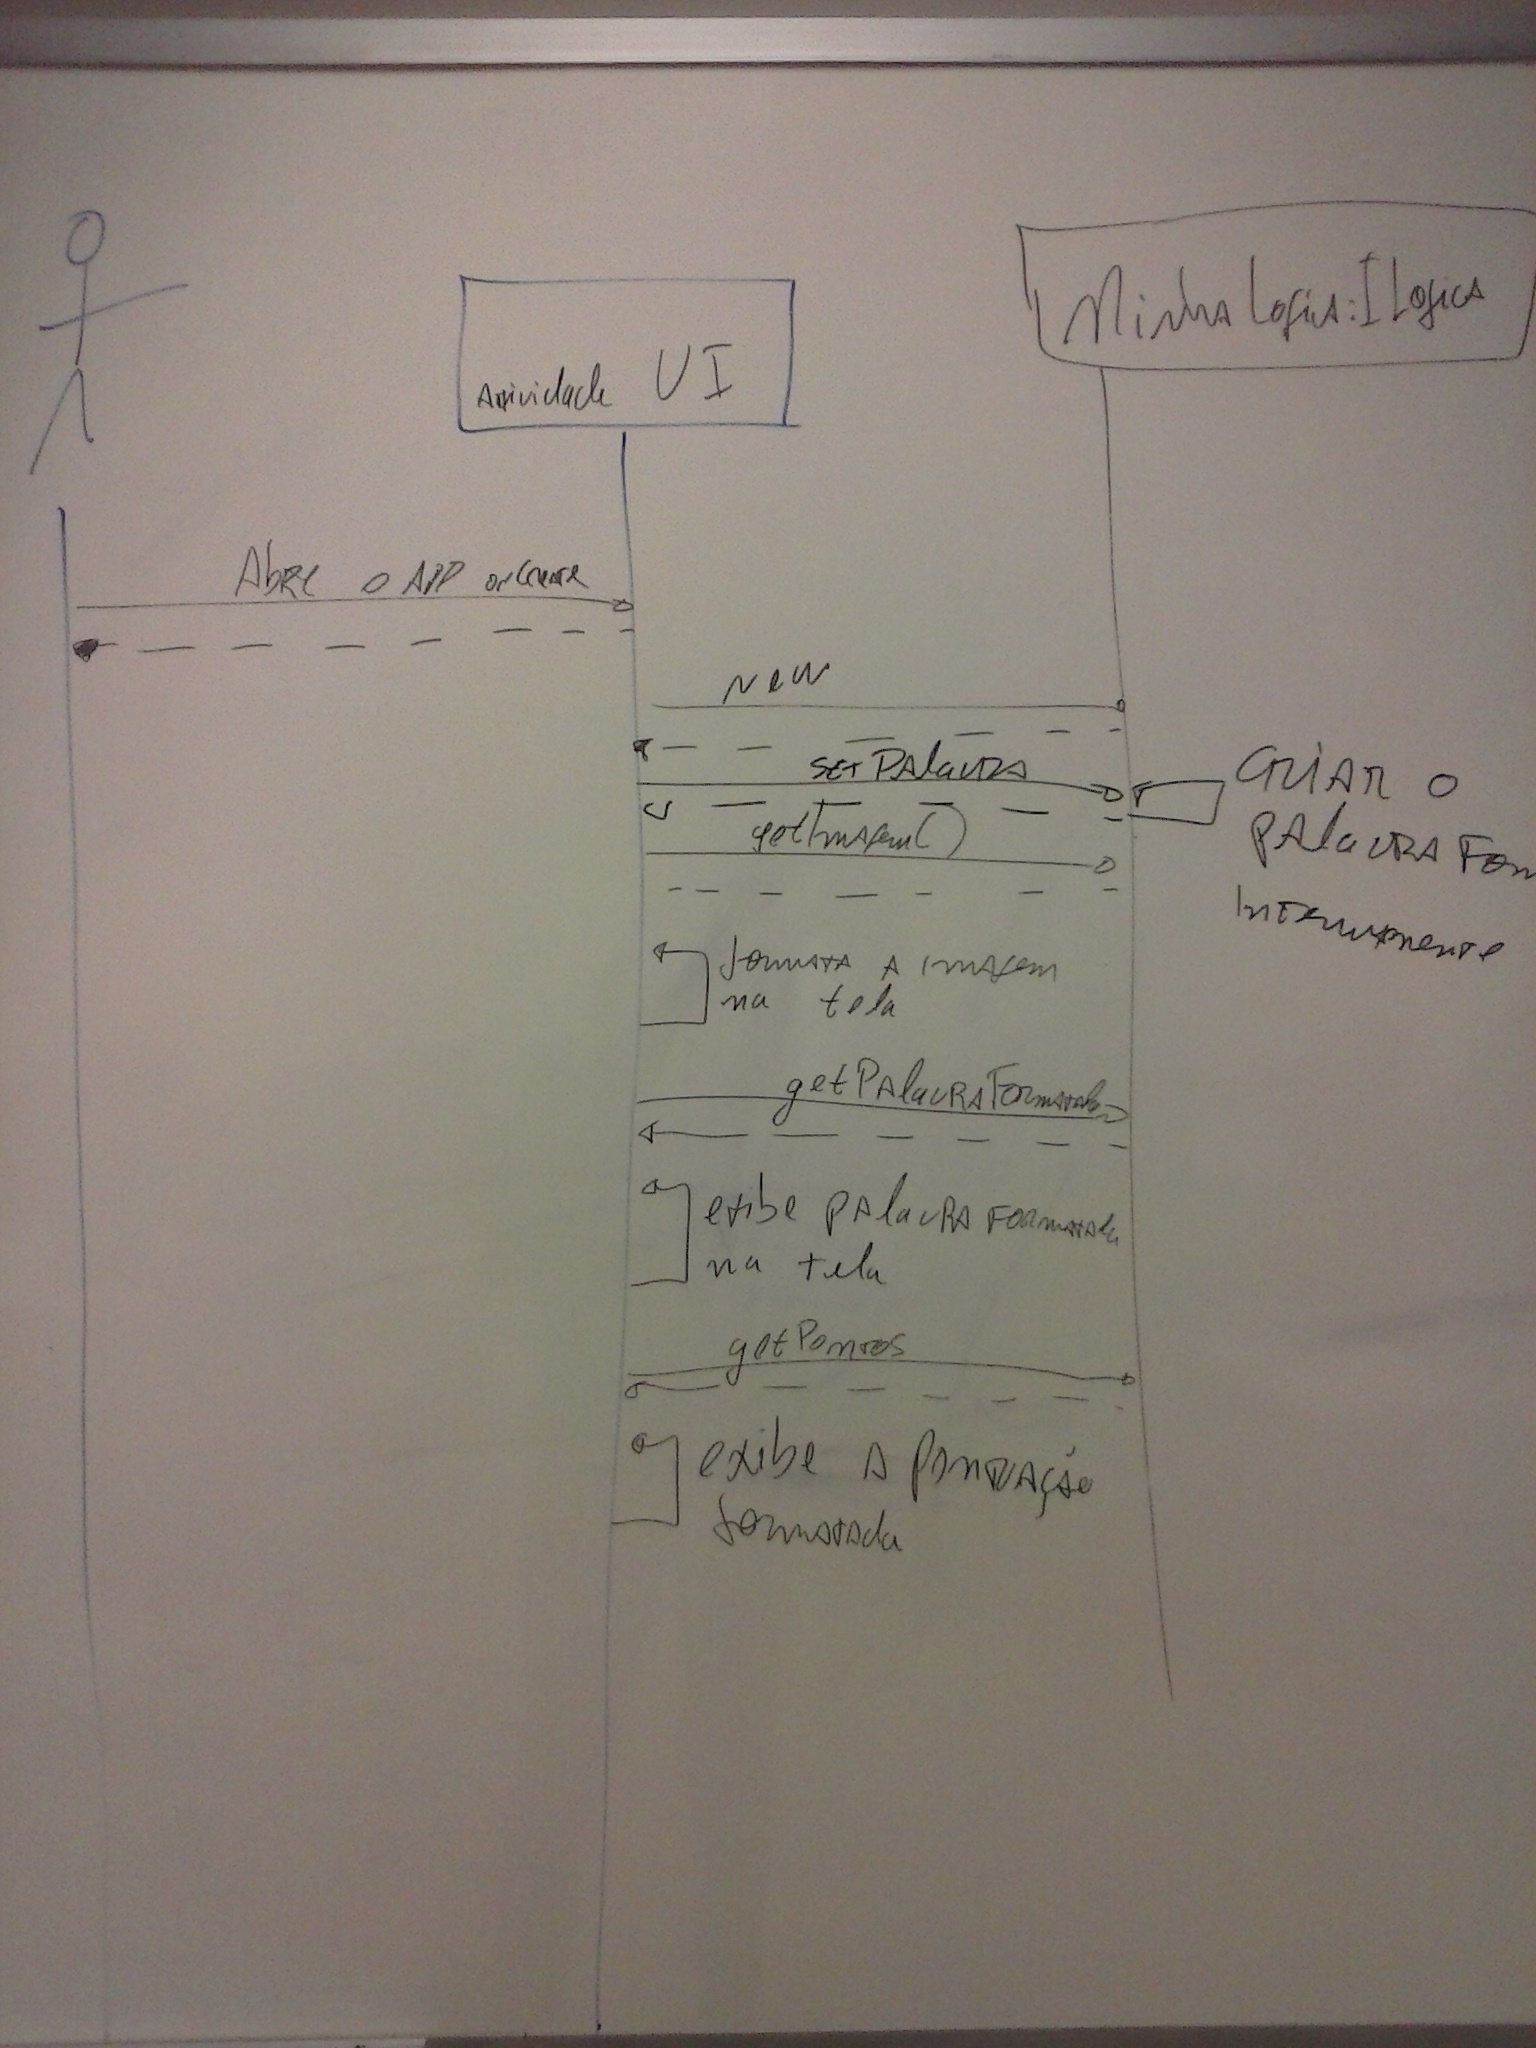 Atividade UI
Minha Logica: ILogica
Abre o APP onCreate
new
setPalavra
Criar o
Palavra Form
Internamente
getImagem()
formata a imagem
na tela
getPalavraFormatada
exibe palavra formatada
na tela
getPontos
exibe a pontuação
formatada